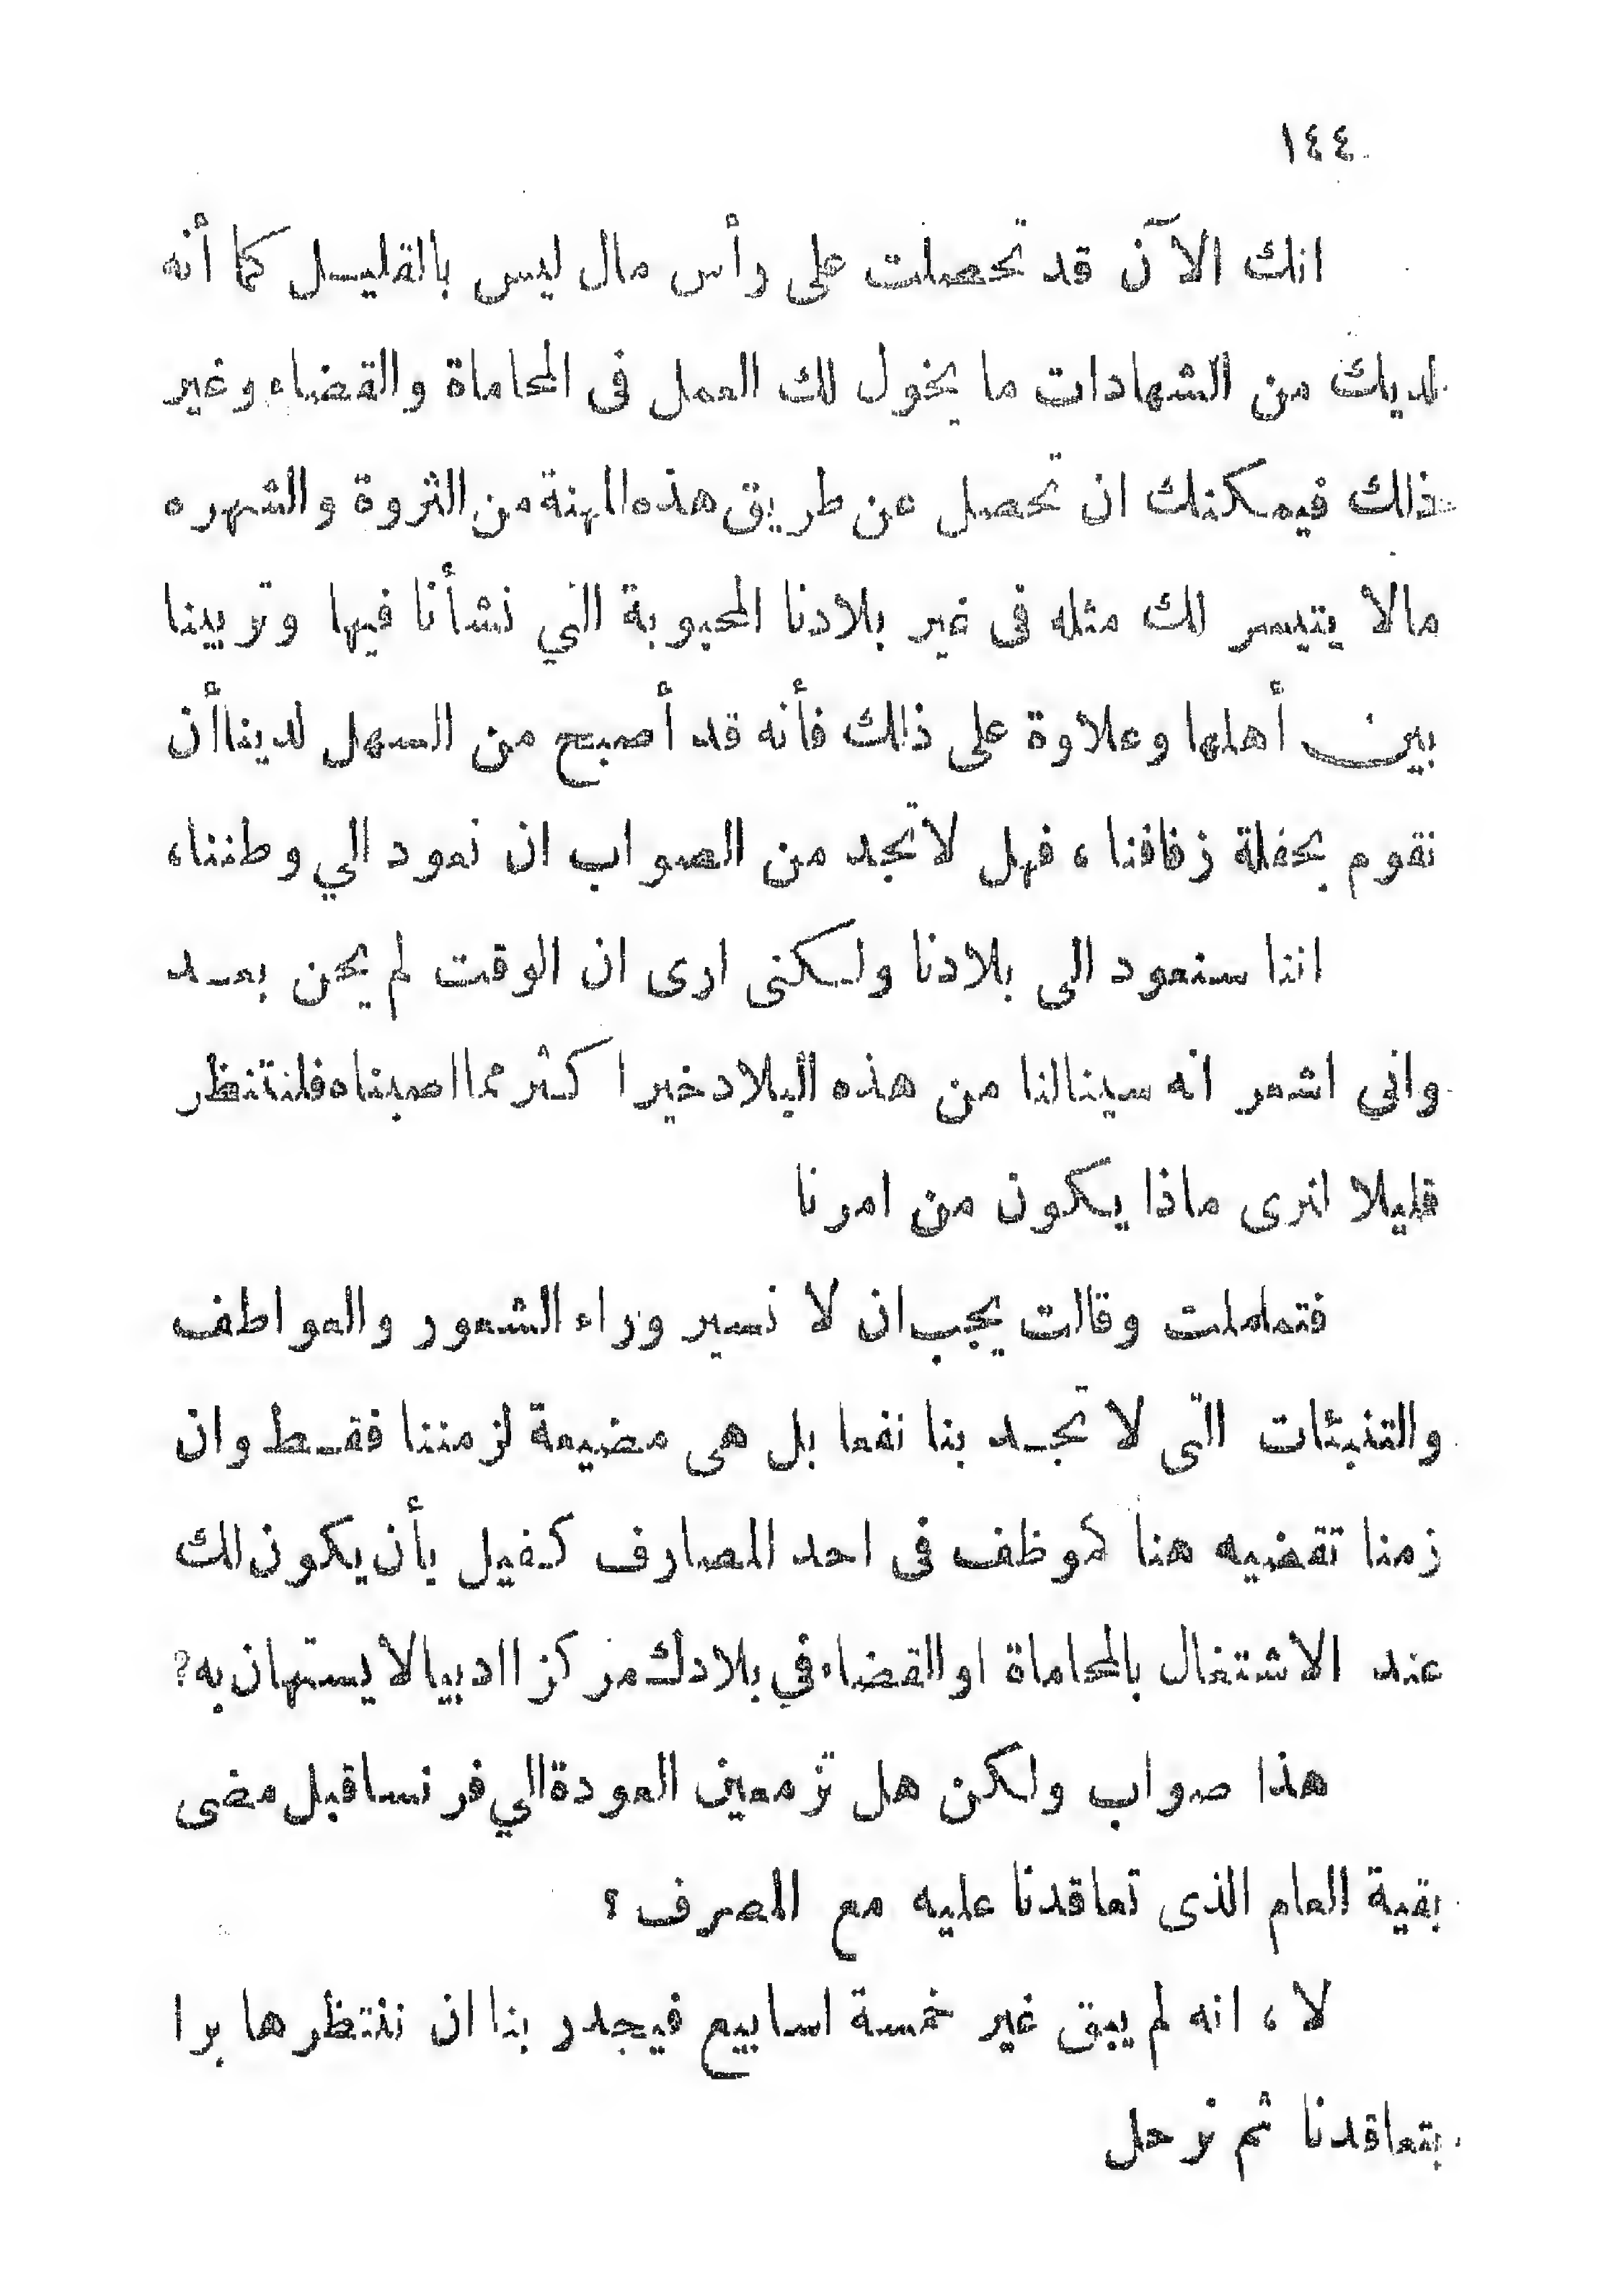 ١٤٤
انك الآن قد تحصلت على رأس مال ليس بالقليل كما أنه
لديك من الشهادات ما يخول لك العمل فى المحاماة والقضاء وغير
ذلك فيمكنك ان تحصل عن طريق هذه المهنة من الثروة والشهره
مالا يتيسر لك مثله فى غير بلادنا المحبوبة التي نشأنا فيها وتربينا
بين أهلها وعلاوة على ذلك فأنه قد أصبح من السهل لدينا أن
نقوم بحفلة زفافنا ، فهل لا تجد من الصواب ان نعود الي وطننا،
اننا سنعود الى بلادنا ولكنى ارى ان الوقت لم يحن بعد
واني اشعر انه سينالنا من هذه البلاد خيرا كثر مما اصبناه فلنتنظر
قليلا لنرى ماذا يكون من امرنا
فتململت وقالت يجب ان لا نسير وراء الشعور والعواطف
والتنبئات التى لا تجد بنا نفعا بل هى مضيعة لزمننا فقط وان
زمنا تقضيه هنا كموظف فى احد المصارف كفيل بأن يكون لك
عند الاشتغال بالمحاماة او القضاء في بلادك مركزا ادبيا لا يستهان به؟
هذا صواب ولكن هل تزمعين العودة الي فرنسا قبل مضى
بقية العام الذى تعاقدنا عليه مع المصرف ؟
لا ، انه لم يبق غير خمسة اسابيع فيجدر بنا ان ننتظرها برا
بتعاقدنا ثم نرحل